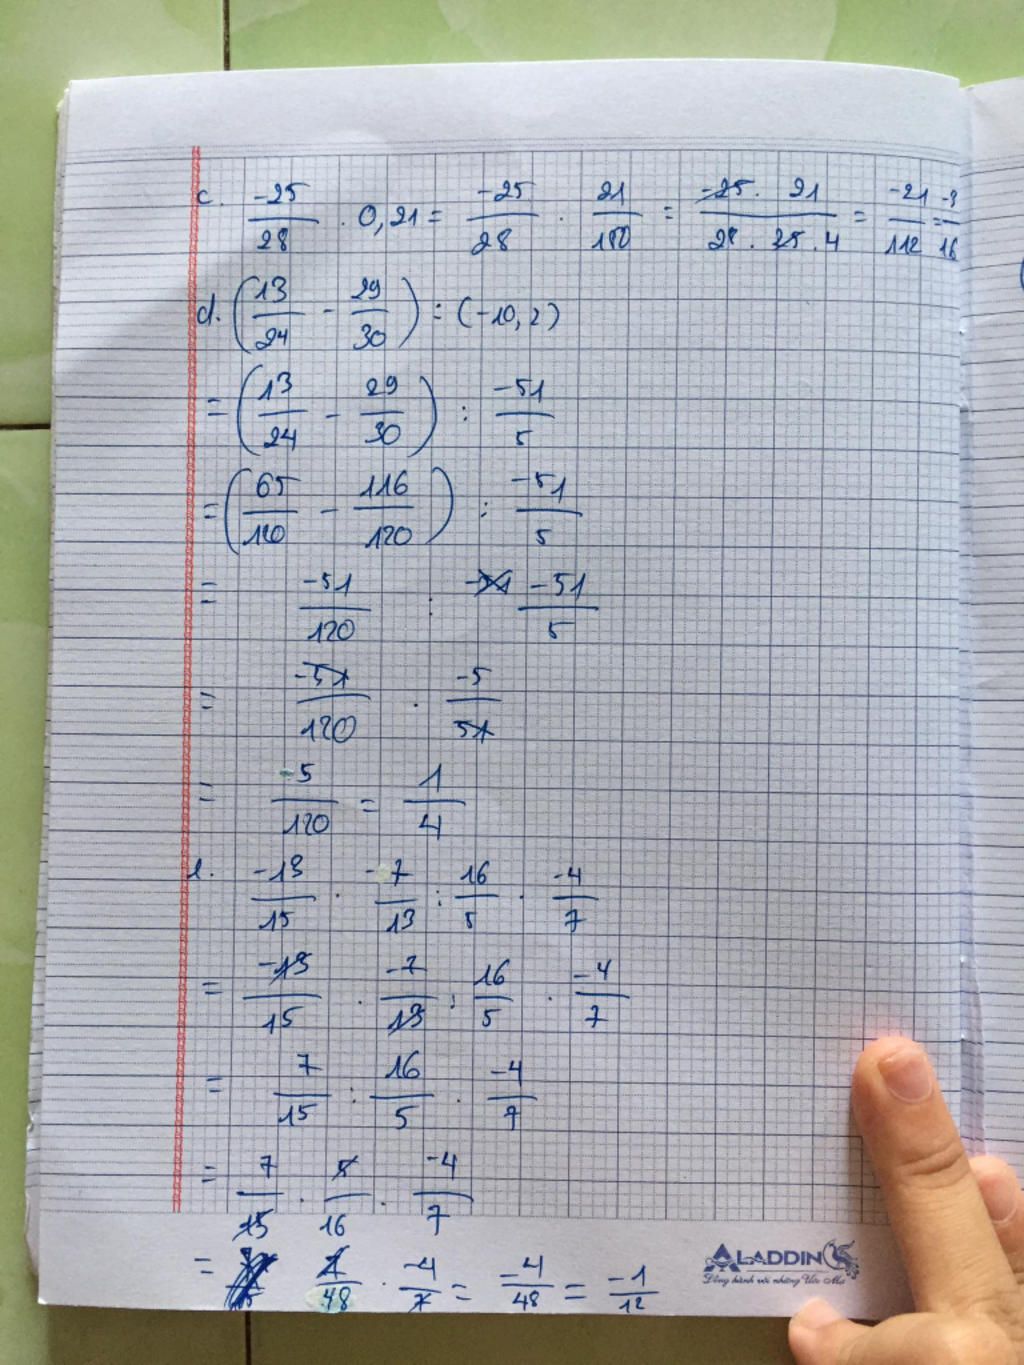 c. -25/28 . 0,21 = -25/28 . 21/100 = -25 . 21/28 . 25 . 4 = -21/112 = -3/16
d. (13/24 - 29/30) : (-10,2)
= (13/24 - 29/30) : -51/5
= (65/120 - 116/120) : -51/5
= -51/120 : -51/5
= -51/120 . -5/51
= 5/120 = 1/4
e. -13/15 . -7/13 : 16/5 . -4/7
= -13/15 . -7/13 : 16/5 . -4/7
= 7/15 : 16/5 . -4/7
= 7/15 . 5/16 . -4/7
= 7/48 . -4/7 = -4/48 = -1/12
ALADDIN
Đồng hành với những Ước Mơ